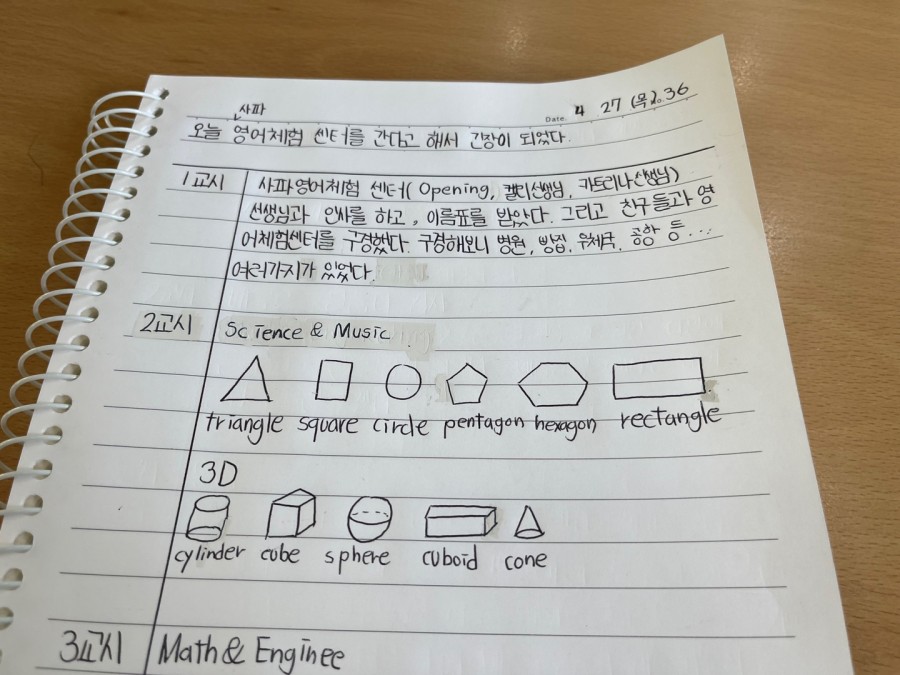 사파
Date. 4 27 (목) No. 36
오늘 영어체험 센터를 간다고 해서 긴장이 되었다.
1교시 사파영어체험 센터( Opening, 캘리선생님, 카트리나선생님)
선생님과 인사를 하고, 이름표를 받았다. 그리고 친구들과 영
어체험센터를 구경했다. 구경해보니 병원, 빵집, 우체국, 공항 등...
여러가지가 있었다.
2교시 Science & Music
triangle square circle pentagon hexagon rectangle
3D
cylinder cube sphere cuboid cone
3교시 Math & Enginee